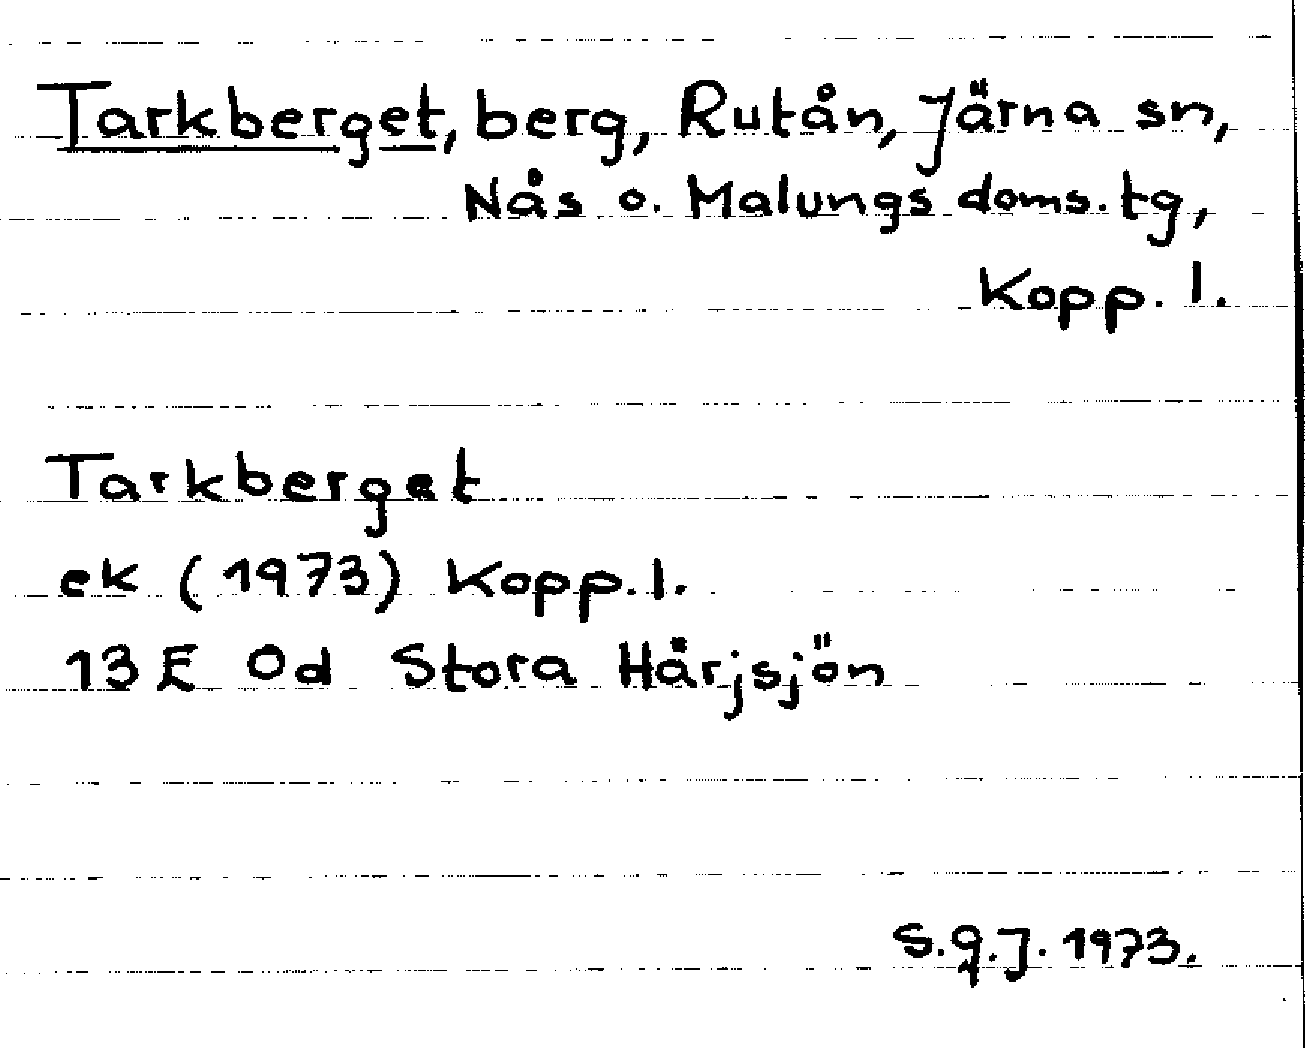 Tarkberget, berg, Rutån, Järna sn,
Nås o. Malungs doms. tg,
Kopp. l.
Tarkberget
ek (1973) Kopp. l.
13 E 0d Stora Härjsjön
S.G.J. 1973.